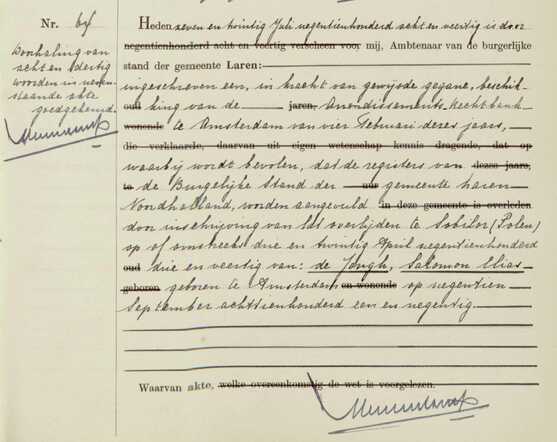 Nr. 64
Doorhaling van
acht en dertig
woorden in neven-
staande akte
goedgekeurd.
Heden zeven en twintig Juli negentienhonderd acht en veertig is door
negentienhonderd acht en veertig verscheen voor mij, Ambtenaar van de burgerlijke
stand der gemeente Laren:
ingeschreven een, in kracht van gewijsde gegane, beschik-
oud king van de jaren, Arrondissements-Rechtbank
wonende te Amsterdam van vier Februari dezes jaars,
die verklaarde, daarvan uit eigen wetenschap kennis dragende, dat op
waarbij wordt bevolen, dat de registers van dezes jaars,
te de Burgelijke Stand der uur gemeente Laren
Noordholland, worden aangevuld in deze gemeente is overleden
door inschrijving van het overlijden te Sobibor (Polen)
op of omstreeks drie en twintig April negentienhonderd
oud drie en veertig van: de Jongh, Salomon Elias
geboren geboren te Amsterdam en wonende op negentien
September achttienhonderd een en negentig.
Waarvan akte, welke overeenkomstig de wet is voorgelezen.